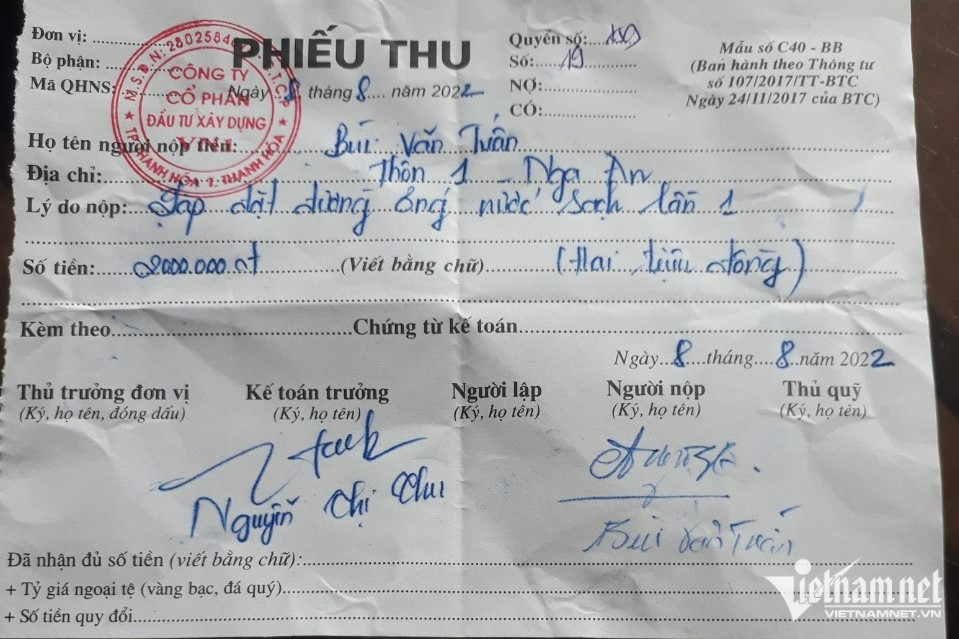 Đơn vị:
Bộ phận:
Mã QHNS:
M.S.D.N: 2802584
CÔNG TY
CỔ PHẦN
ĐẦU TƯ XÂY DỰNG
TP. THANH HÓA T. THANH HÓA
PHIẾU THU
Ngày 8 tháng 8 năm 2022
Quyển số:
Số: 19
NỢ:
CÓ:
Mẫu số C40 - BB
(Ban hành theo Thông tư
số 107/2017/TT-BTC
Ngày 24/11/2017 của BTC)
Họ tên người nộp tiền: Bùi Văn Tuấn
Địa chỉ: Thôn 1 Nga An
Lý do nộp: Lắp đặt đường ống nước sạch lần 1
Số tiền: 2000.000 đ (Viết bằng chữ) (Hai triệu đồng)
Kèm theo Chứng từ kế toán
Ngày 8 tháng 8 năm 2022
Thủ trưởng đơn vị Kế toán trưởng Người lập Người nộp Thủ quỹ
(Ký, họ tên, đóng dấu) (Ký, họ tên) (Ký, họ tên) (Ký, họ tên) (Ký, họ tên)
Nguyễn Chị
Bùi Văn Tuấn
Đã nhận đủ số tiền (viết bằng chữ):
+ Tỷ giá ngoại tệ (vàng bạc, đá quý)
+ Số tiền quy đổi
Vietnam.net
VIETNAMNET.VN